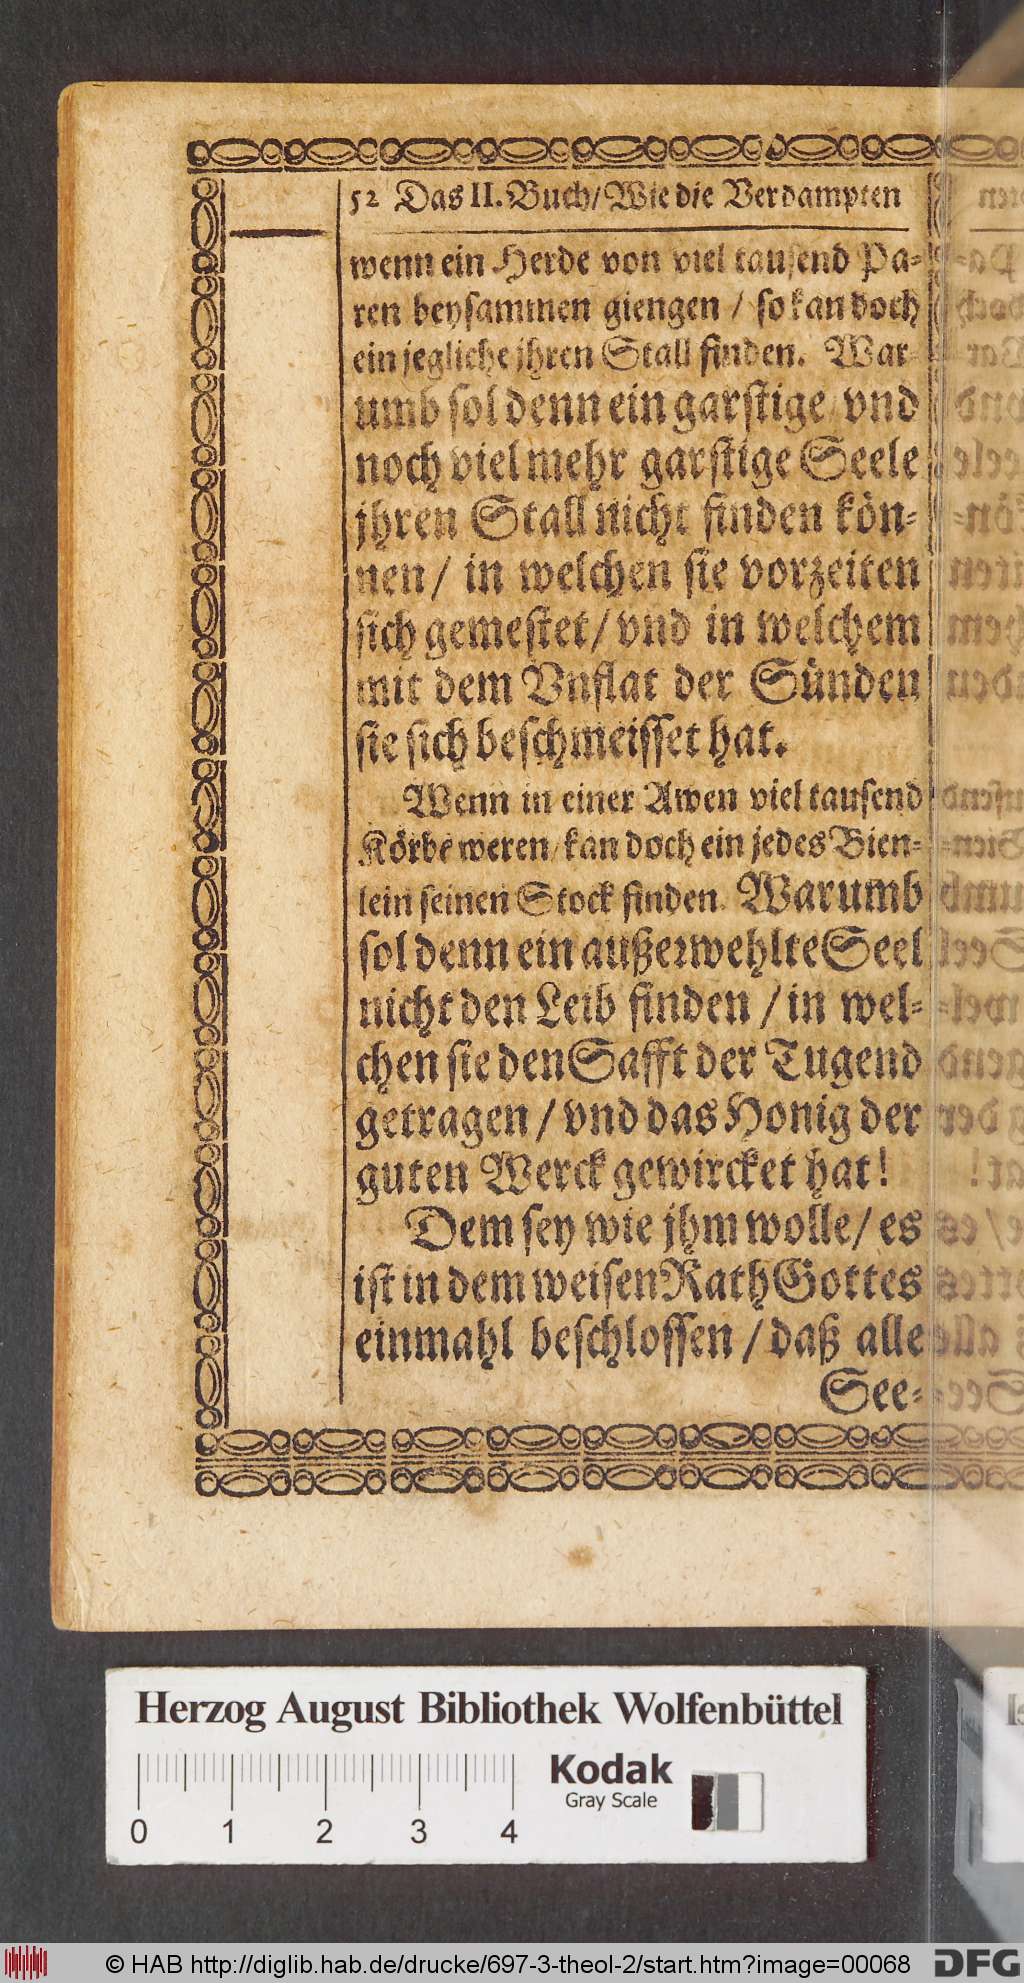 52 Das II. Buch/ Wie die Verdampten
wenn ein Herde von viel tausend Pa-
ren beysammen giengen / so kan doch
ein jegliche jhren Stall finden. War-
umb sol denn ein garstige vnd
noch viel mehr garstige Seele
jhren Stall nicht finden kön-
nen/ in welchen sie vorzeiten
sich gemestet/ vnd in welchem
mit dem Vnflat der Sünden
sie sich beschmeisset hat.
Wenn in einer Awen viel tausend
Körbe weren/ kan doch ein jedes Bien-
lein seinen Stock finden. Warumb
sol denn ein außerwehlte Seel
nicht den Leib finden / in wel-
chen sie den Safft der Tugend
getragen / vnd das Honig der
guten Werck gewircket hat!
Dem sey wie jhm wolle/ es
ist in dem weisen Rath Gottes
einmahl beschlossen / daß alle
See-
Herzog August Bibliothek Wolfenbüttel
Kodak
Gray Scale
0 1 2 3 4
© HAB http://diglib.hab.de/drucke/697-3-theol-2/start.htm?image=00068
DFG